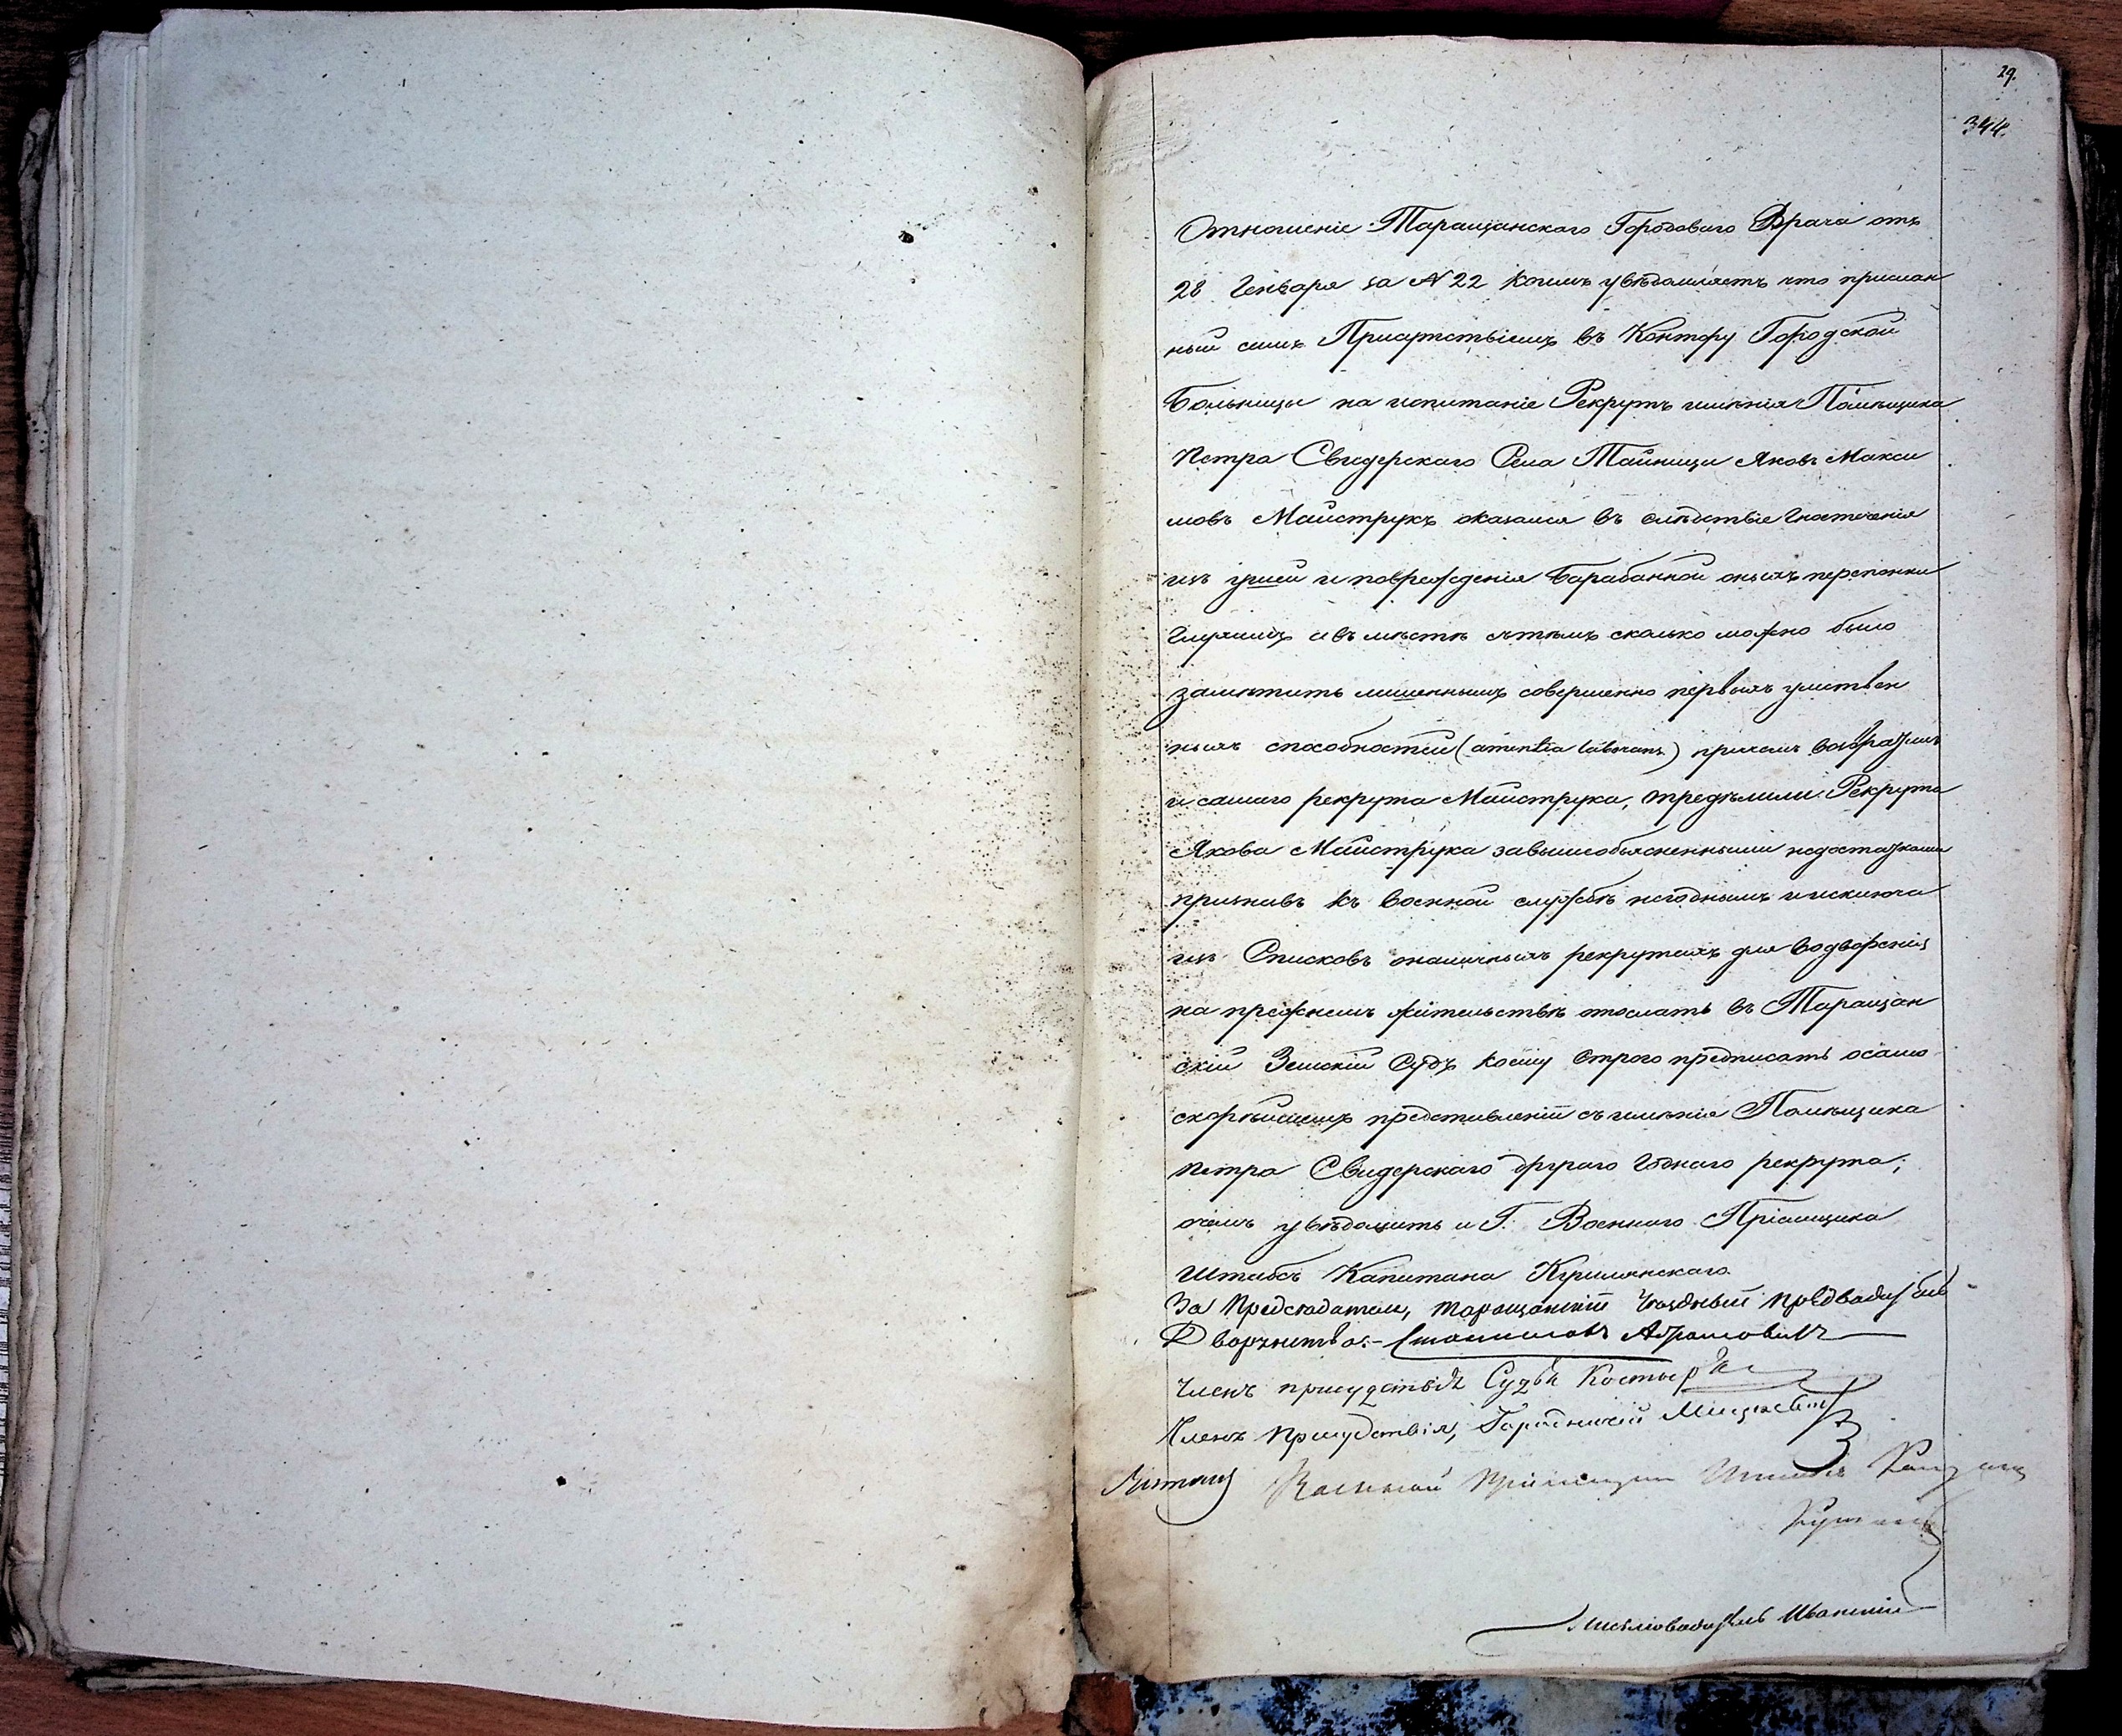 29.
344.
Отношеніе Таращанскаго Городоваго Врача отъ
28 Генваря за № 22 коимъ увѣдомляетъ что прислан
ный симъ Присутствіемъ въ Контору Городской
Больницы на испитаніе Рекрутъ имѣнія Помѣщика
Петра Свидерскаго Села Тайницы Яковъ Макси
мовъ Майструкъ оказался въ слѣдствіе Гноетеченія
изъ ушей и поврежденія Барабанной оныхъ перепонки
Глухимъ и въ мѣстѣ съ тѣмъ сколько можно было
замѣтить лишеннымъ совершенно первыхъ умствен
ныхъ способностей (amentia laborans) причемъ возвратилъ
и самаго рекрута Майструка, Рекрута
Якова Майструка завышеобъясненными недостатками
признавъ къ военной службѣ негоднымъ и исключа
изъ Списковъ оналичныхъ рекрутахъ для водворенія
на прежнемъ жительствѣ отослать въ Таращан
скій Земскій Судъ коему Строго предписать осамо
скорѣйшемъ представленіи съ имѣнія Помѣщика
Петра Свидерскаго другаго Годнаго рекрута;
очемъ увѣдомить и Г. Военнаго Пріемщика
Штабсъ Капитана
За Предсѣдателя, Таращанскій Уѣздный Предводитель
Дворянства:- Станиславъ Абрамовичъ
Членъ присудствія Судья
Членъ Присудствія, Городничій
Военный Пріемщикъ Штабсъ Капитанъ
Письмоводитель